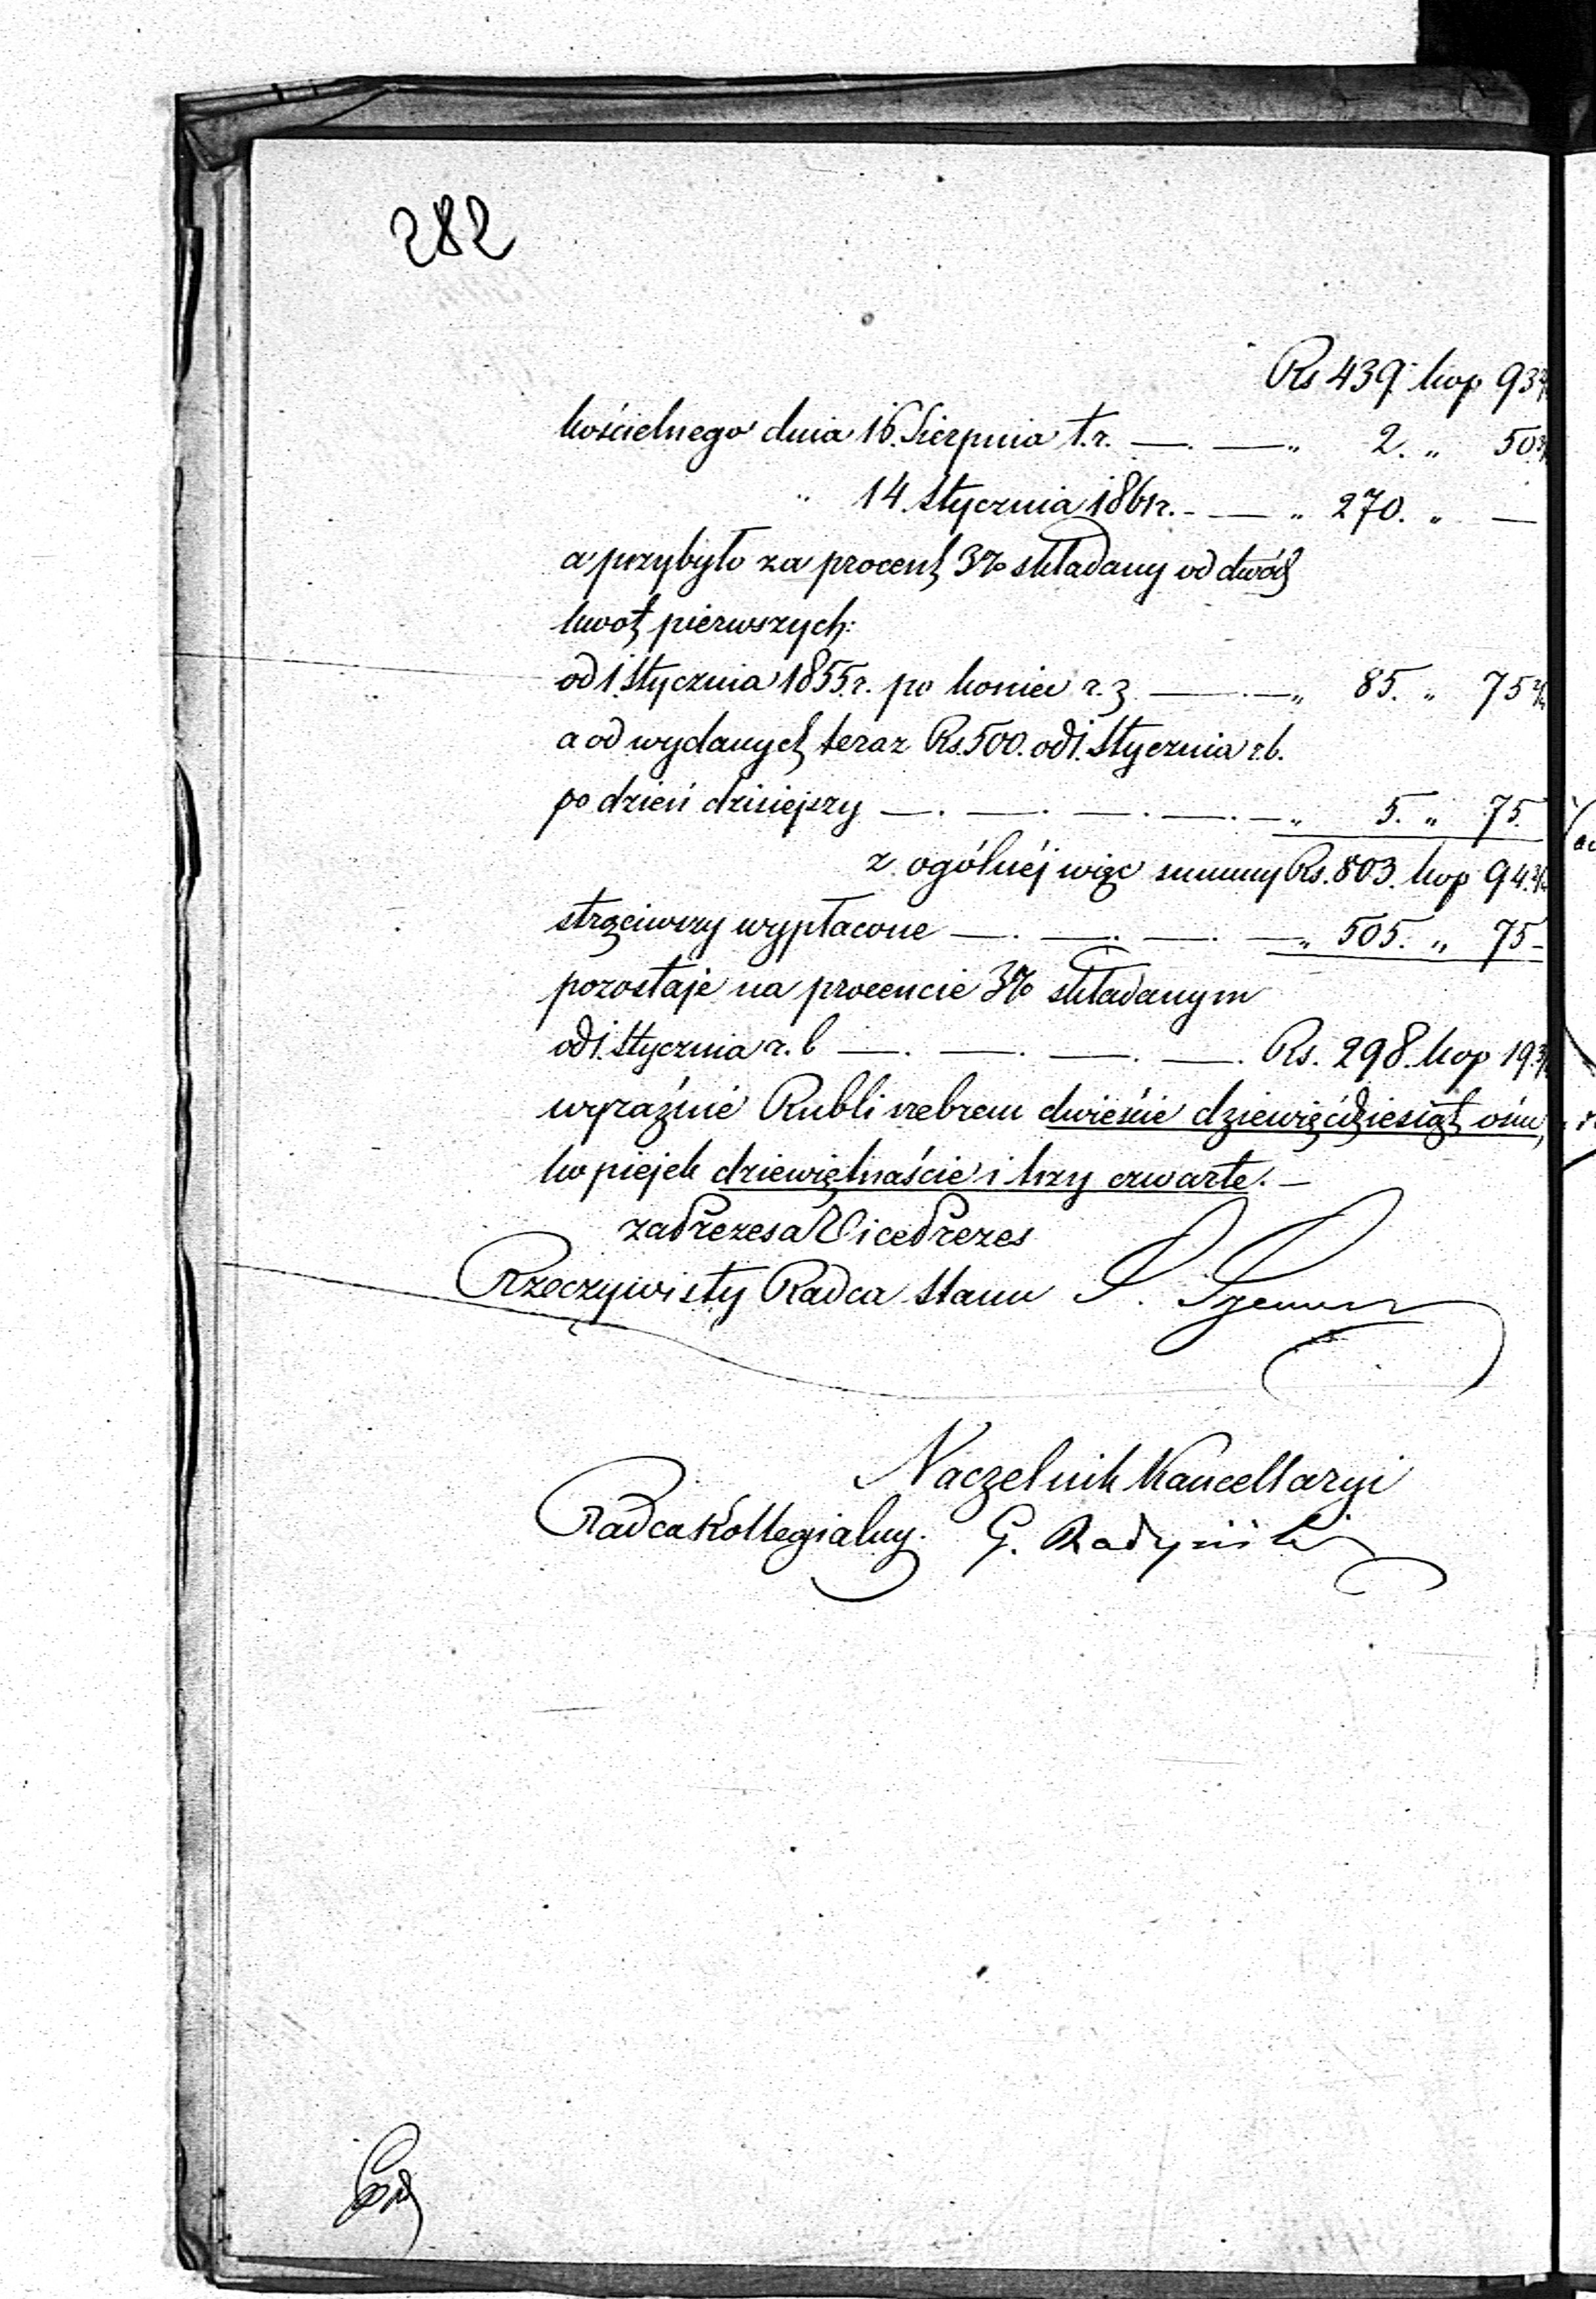 282
Rs 439 kop 93¾
kościelnego dnia 16. Sierpnia t.r. —. — „ 2. „ 50
„ 14. stycznia 1861 r. - — „ 270. „ —
a przybyło za procent 3% składany od dwóch
kwot pierwszych:
od 1. stycznia 1855. r. po koniec r. z. —. — „ 85. „ 75
a od wydanych teraz Rs. 500. od 1. stycznia r.b.
po dzień dzisiejszy —. —. —. —. — „ 5. „ 75.
z ogólnéj więc summy Rs. 803. kop 94.
strąciwszy wypłacone —. —. —. — „ 505. „ 75 -
pozostaje na procencie 3% składanym
od 1. stycznia r. b —. —. —. —. Rs. 298. kop 19.¾
wyraźnie Rubli srebrem dwieście dziewięćdziesiąt ośm,
kopiejek dziewiętnaście i trzy czwarte. —
za Prezesa Vice Prezes
Rzeczywisty Radca Stanu
Naczelnik Kancellaryi
Radca Kollegialny. G. Radyński